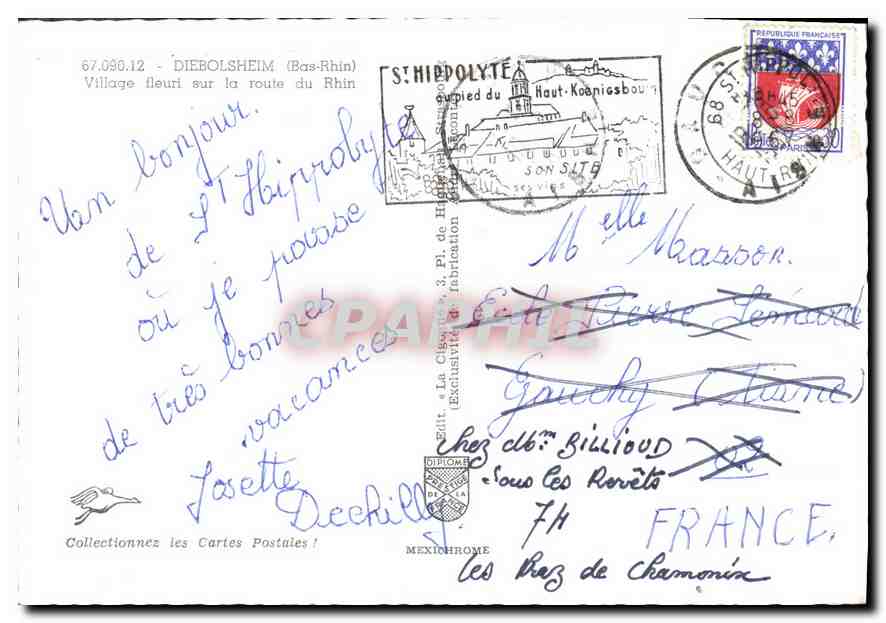 67.090.12 - DIEBOLSHEIM (Bas-Rhin)
Village fleuri sur la route du Rhin
Un bonjour
de St Hippolyte
où je passe
de très bonnes
vacances
Josette
Dechilly
Collectionnez les Cartes Postales !
Edit. « La Cigogne », 3, Pl. de Haguenau, Strasbourg
(Exclusivité de fabrication
DIPLOME
PRESTIGE
DE LA
FRANCE
MEXICHROME
ST HIPPOLYTE
au pied du Haut-Koenigsbourg
SON SITE
SES VINS
REPUBLIQUE FRANÇAISE
PARIS
0,30
68 ST HIPPOLYTE
HAUT-RHIN
Melle Masson.
Ecole Pierre Sémard
Gauchy (Aisne)
02
chez Mme BILLIOUD
sous les Revêts
74 FRANCE.
les Praz de Chamonix
CPAPHIL